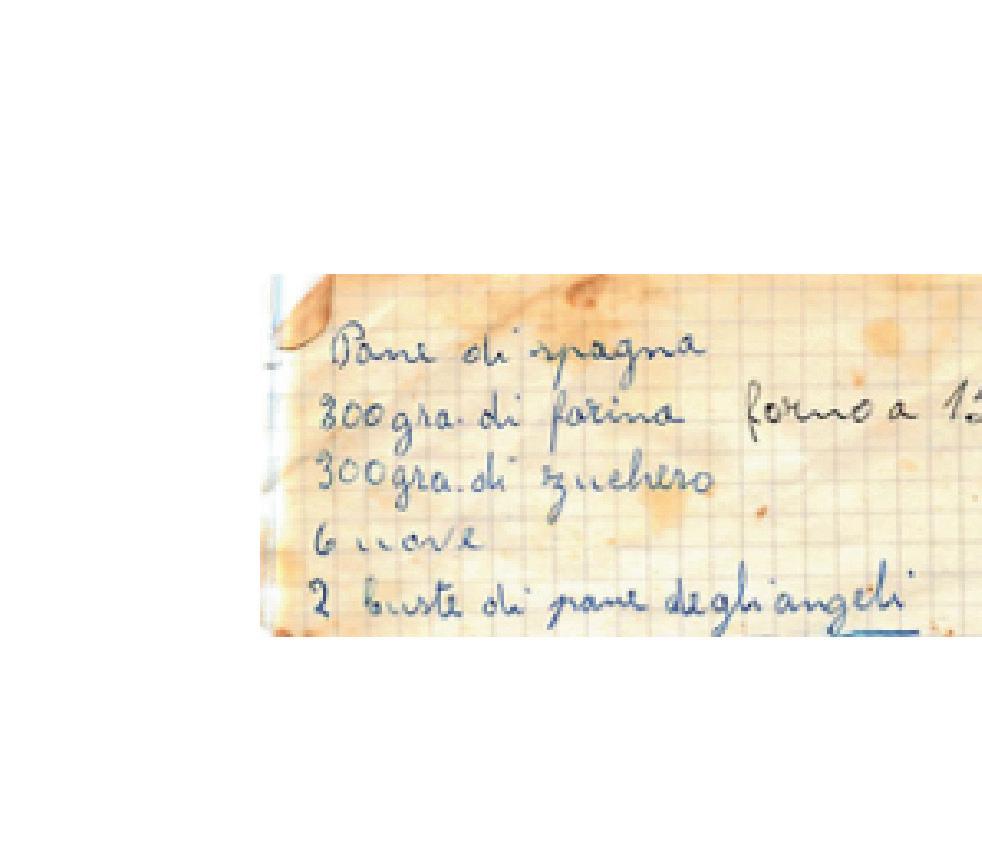 Pane di spagna
300 gra. di farina forno a
300 gra. di zuchero
6 uove
2 buste di pane degli angeli